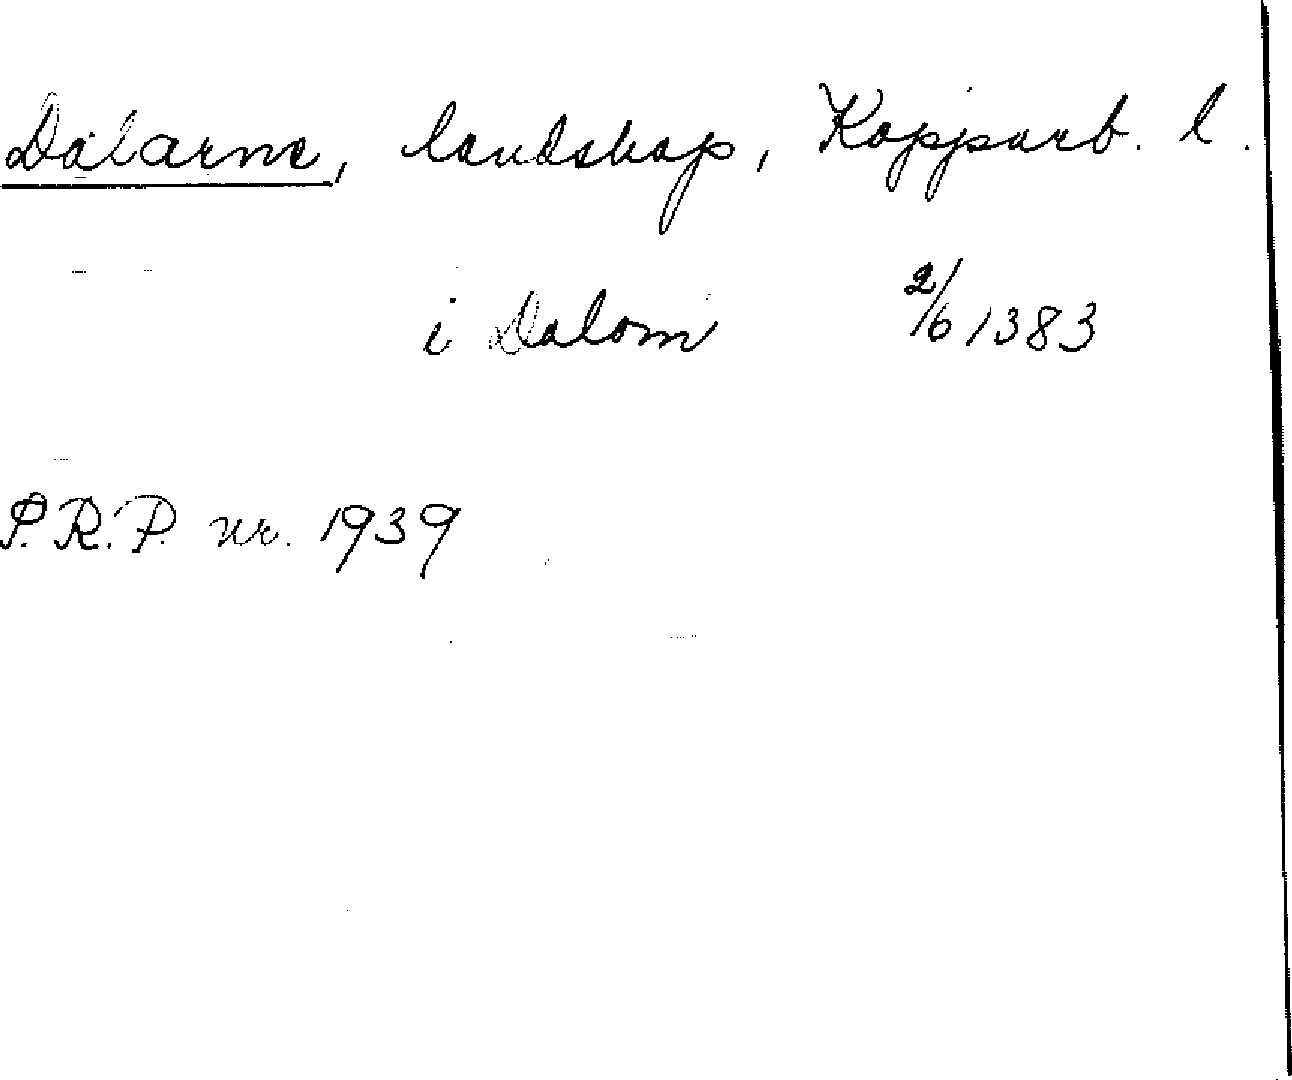 Dalarne, landskap, Kopparb. l.
i Dalom 2/6 1383
S.R.P. nr. 1939